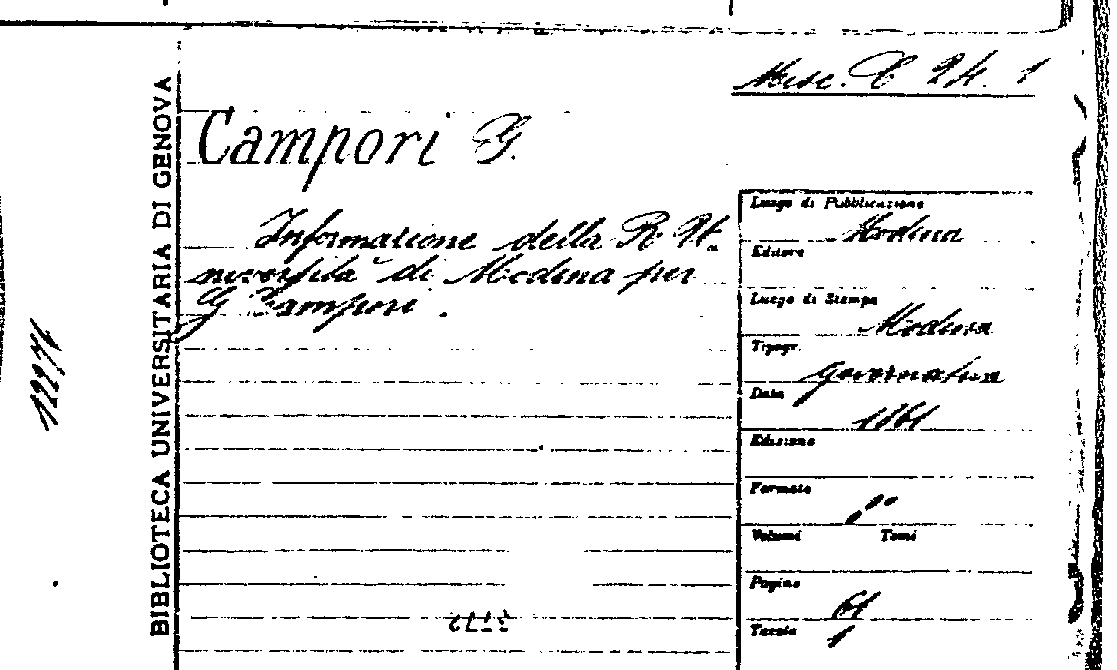 Misc. C 24. 1
BIBLIOTECA UNIVERSITARIA DI GENOVA
Campori G.
Informazione della R. U-
niversità di Modena per
G Campori.
Luogo di Pubblicazione
Modena
Editore
Luogo di Stampa
Modena
Tipogr.
Governativa
Data
1861
Edizione
Formato
8°
Volumi Tomi
Pagine
61
Tavole
1